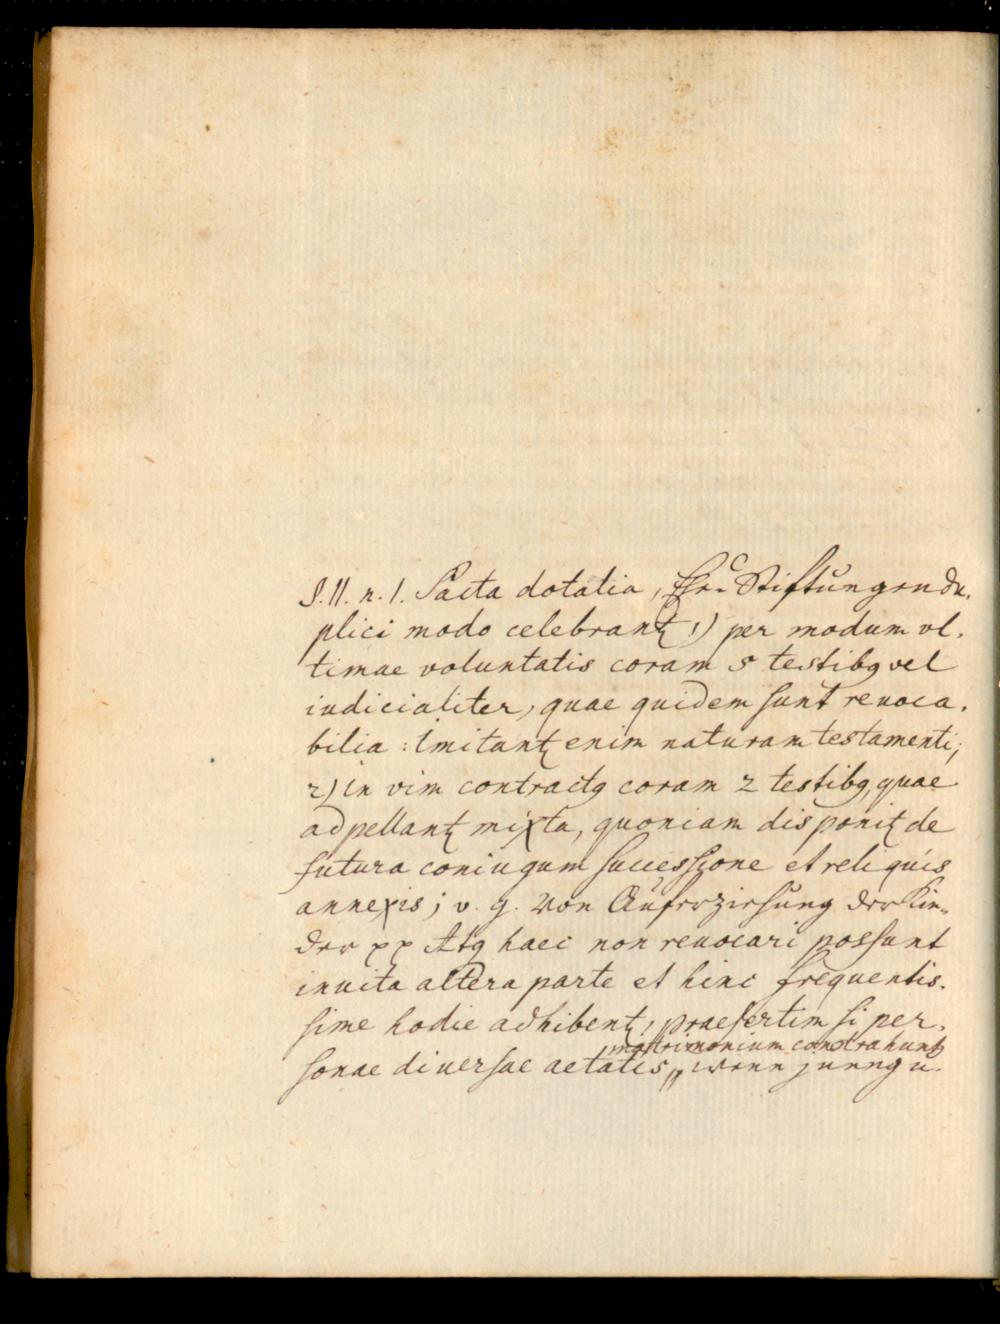 §. II. n. 1. Pacta dotalia, Ehe-Stiftungen du-
plici modo celebrantꝫ 1) per modum vl-
timae voluntatis coram 5 testibꝫ vel
iudicialiter, quae quidem sunt reuoca-
bilia: imitantꝫ enim naturam testamenti;
2) in vim contractꝫ coram 2 testibꝫ, quae
adpellantꝫ mixta, quoniam disponitꝫ de
futura coniugum successione et reliquis
annexis; v. g. von Auferziehung der Kin-
der pp Atqꝫ haec non reuocari possunt
inuita altera parte et hinc frequentis-
sime hodie adhibentꝫ, praesertim si per-
matrimonium contrahunt
sonae diuersae aetatis,, wenn jung u.